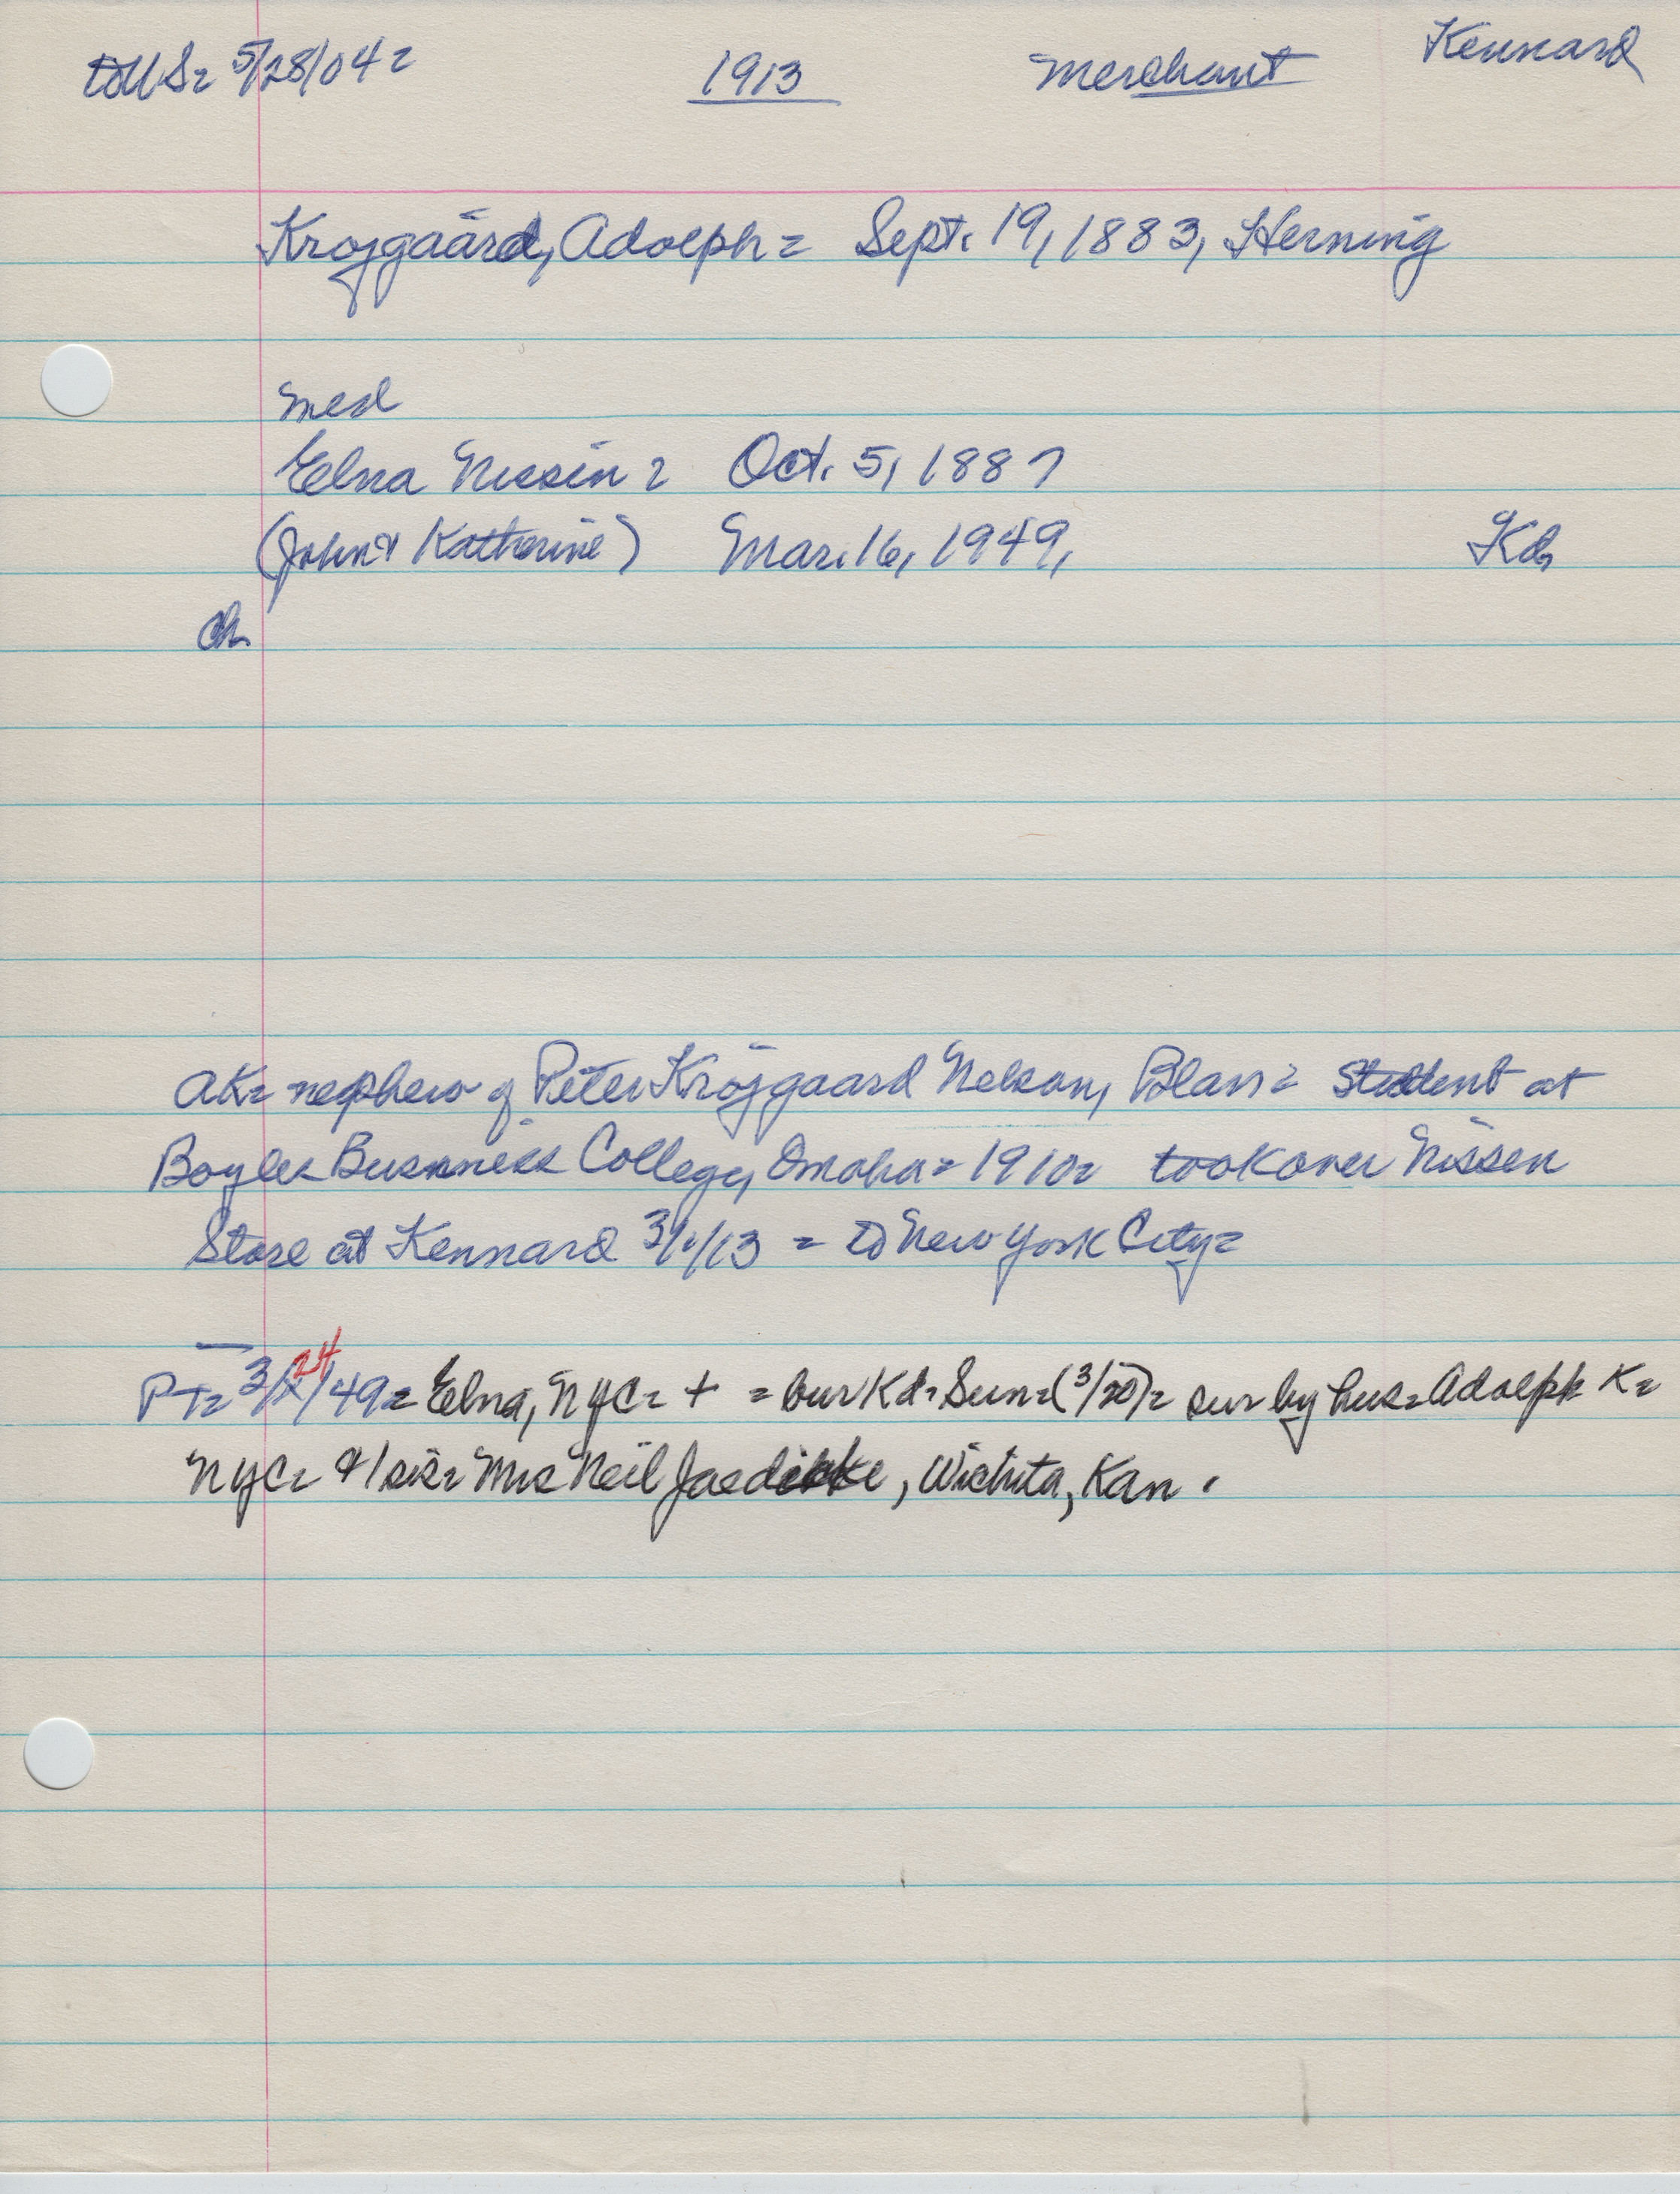 to U S = 5/28/04 = 1913 Merchant Kennard
Krojgaard, Adolph = Sept. 19, 1883, Herning
med
Elna Nissin = Oct. 5, 1887
(John & Katherine) Mar. 16, 1949, Kd,
Ch.
AK = nephew of Peter Krojgaard Nelson, Blair = Student at
Boyles Business College, Omaha = 1910 = took over Nissen
Store at Kennard 3/1/13 = to New York City =
PT = 3/24/49 = Elna, NYC = + = bur Kd = Sun = (3/20) = sur by hus = Adolph K =
NYC = & 1 sis = Mrs Neil Jaedicke, Wichita, Kan.